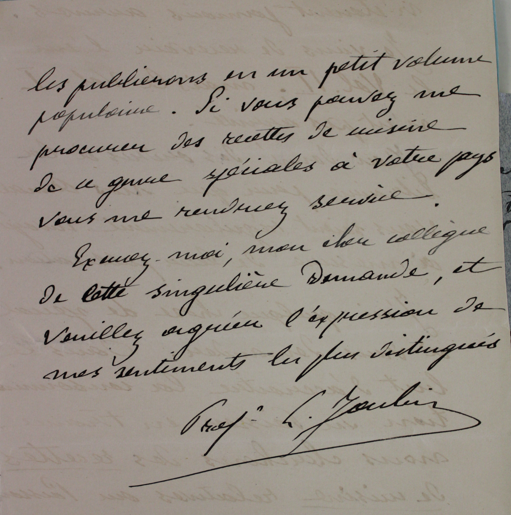 les publierons en un petit volume
populaire. Si vous pouvez me
procurer des recettes de cuisine
de ce genre spéciales à votre pays
vous me rendriez service.
Excusez-moi, mon cher collègue
de cette singulière Demande, et
veuillez agréer l'expression de
mes sentiments les plus distingués
Profr L. Joubin